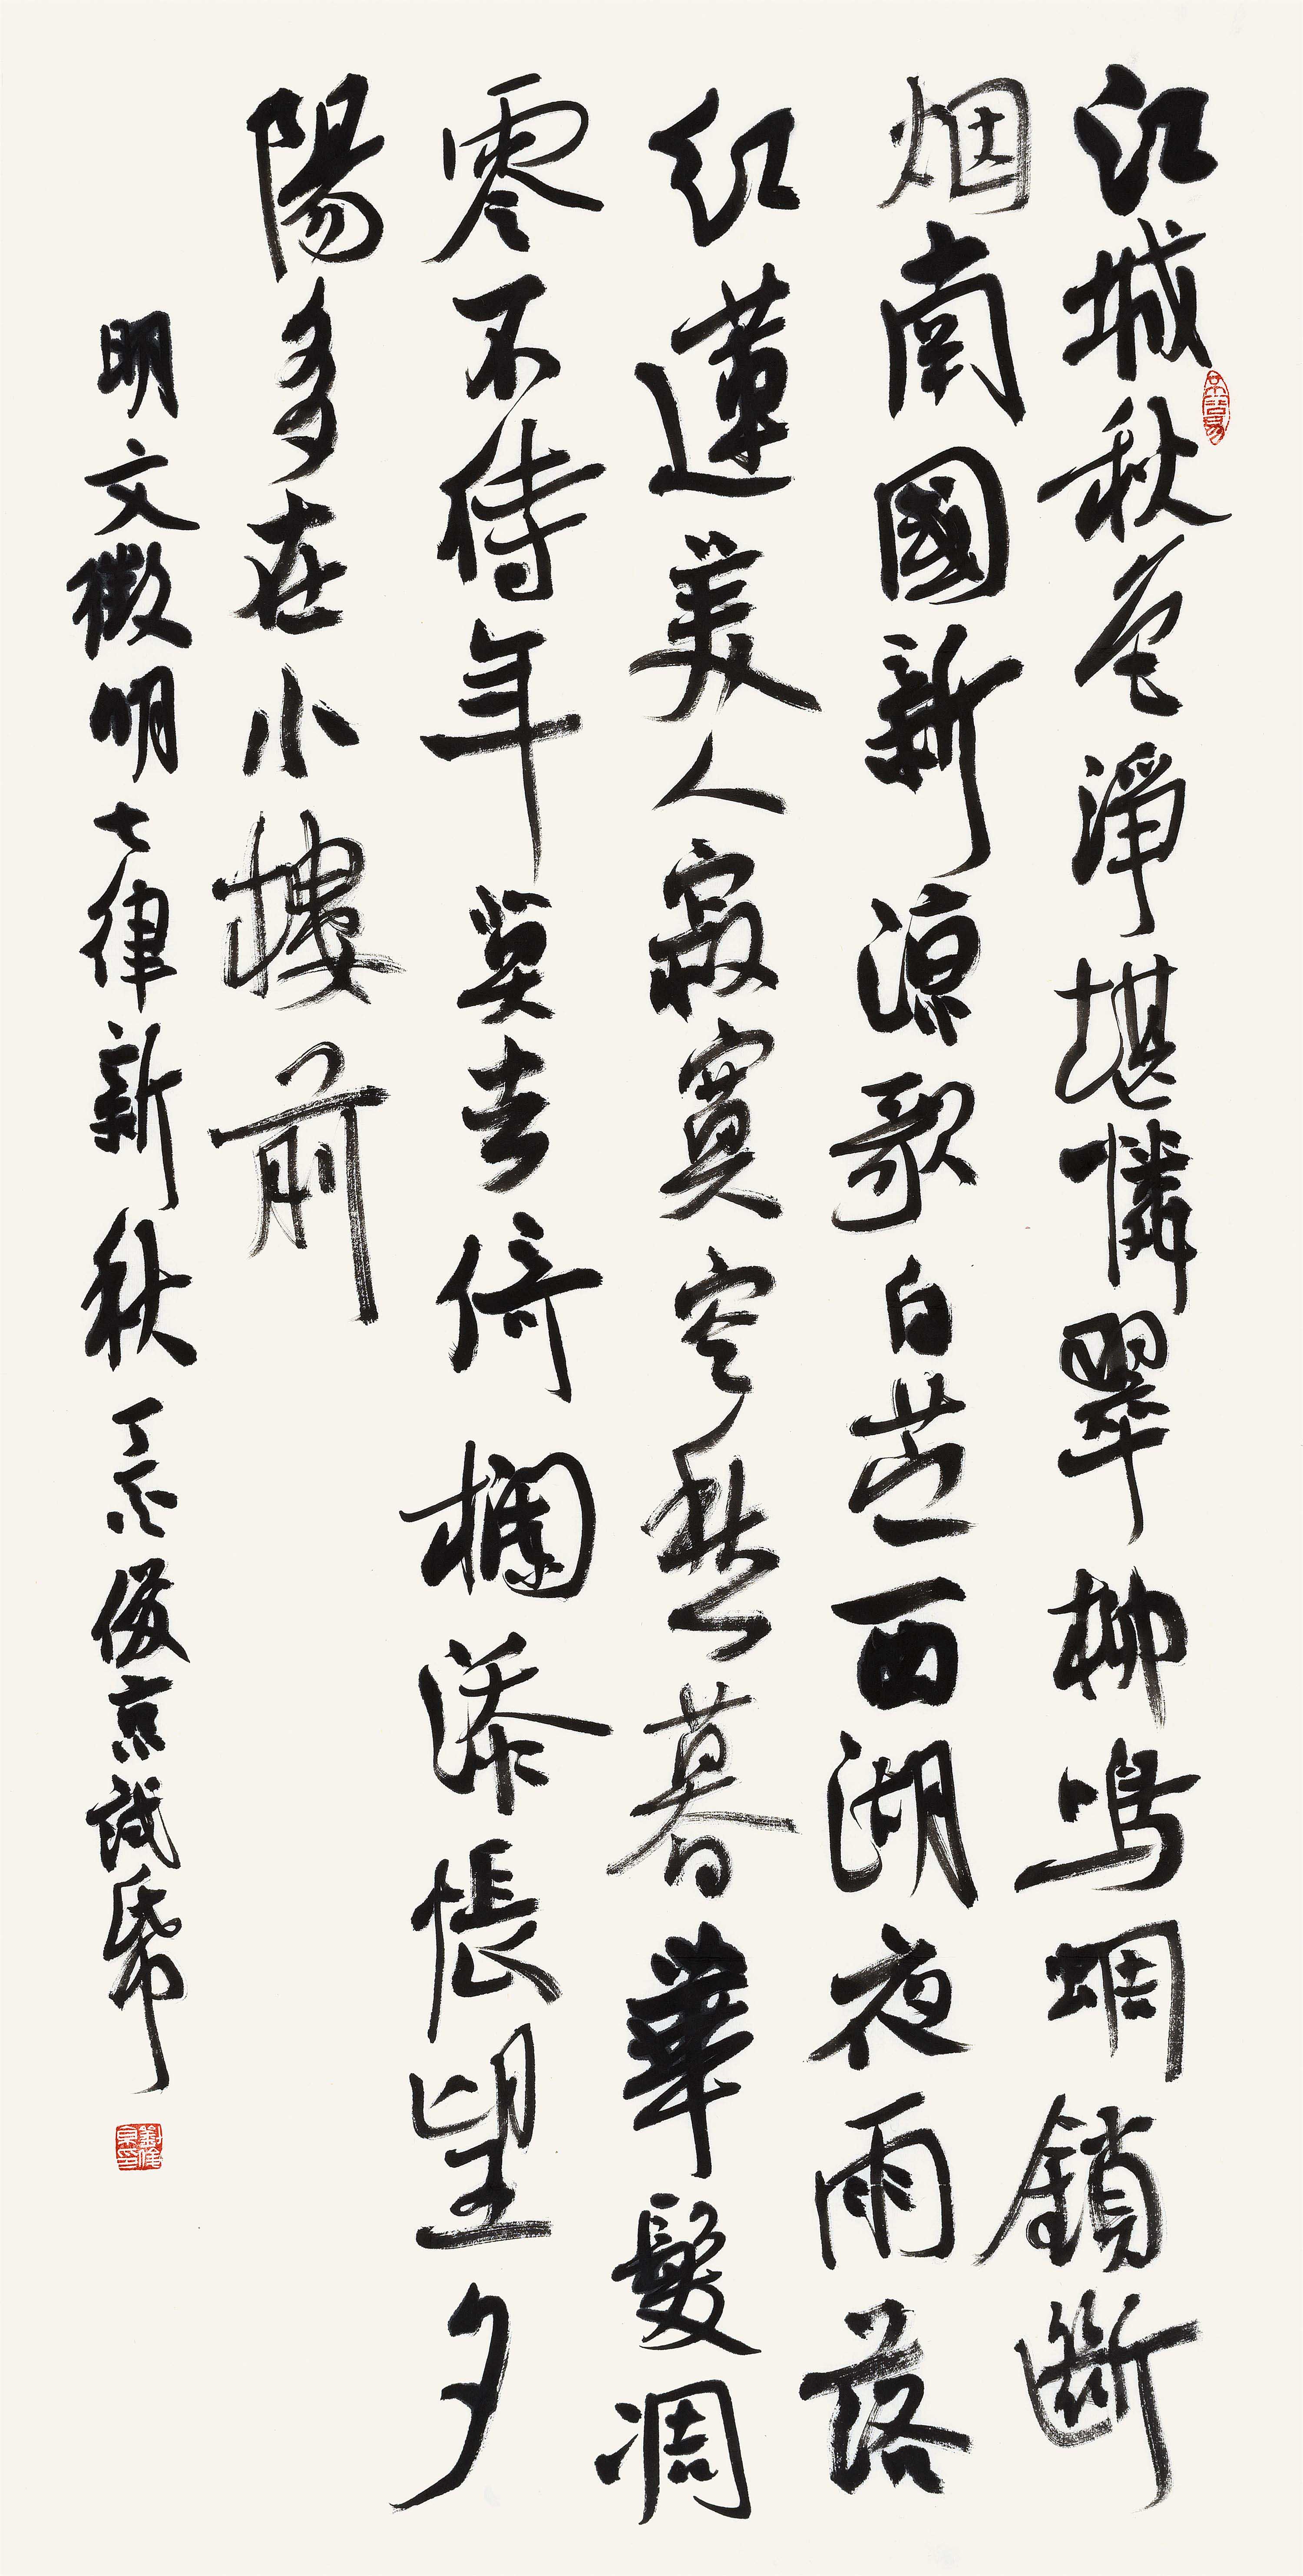 江城秋色淨堪憐翠柳鳴蜩鎖斷
烟南國新涼歌白苎西湖夜雨落
紅蓮美人寂寞空愁暮華髮凋
零不待年莫去倚欄添悵望夕
陽多在小樓前
明文徵明七律新秋丁酉俊京試紙